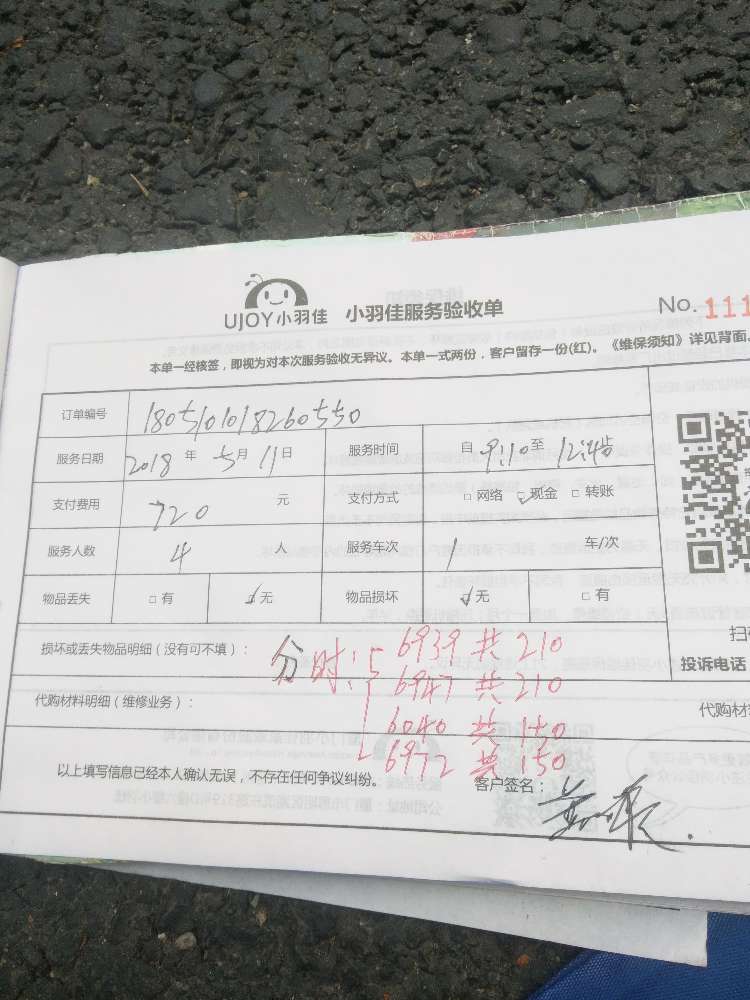 UJOY小羽佳 小羽佳服务验收单 No. 111
本单一经核签，即视为对本次服务验收无异议。本单一式两份，客户留存一份(红)。《维保须知》详见背面。
订单编号 1805101018260550
服务日期 2018 年 5 月 11 日 服务时间 自 9:10 至 12:45
支付费用 720 元 支付方式 □ 网络 ☑ 现金 □ 转账
服务人数 4 人 服务车次 1 车/次
物品丢失 □ 有 ☑ 无 物品损坏 ☑ 无 □ 有
损坏或丢失物品明细（没有可不填）：
分时：
6939 共 210
6947 共 210
6040 共 150
6972 共 150
投诉电话
代购材料明细（维修业务）： 代购材
以上填写信息已经本人确认无误，不存在任何争议纠纷。 客户签名：